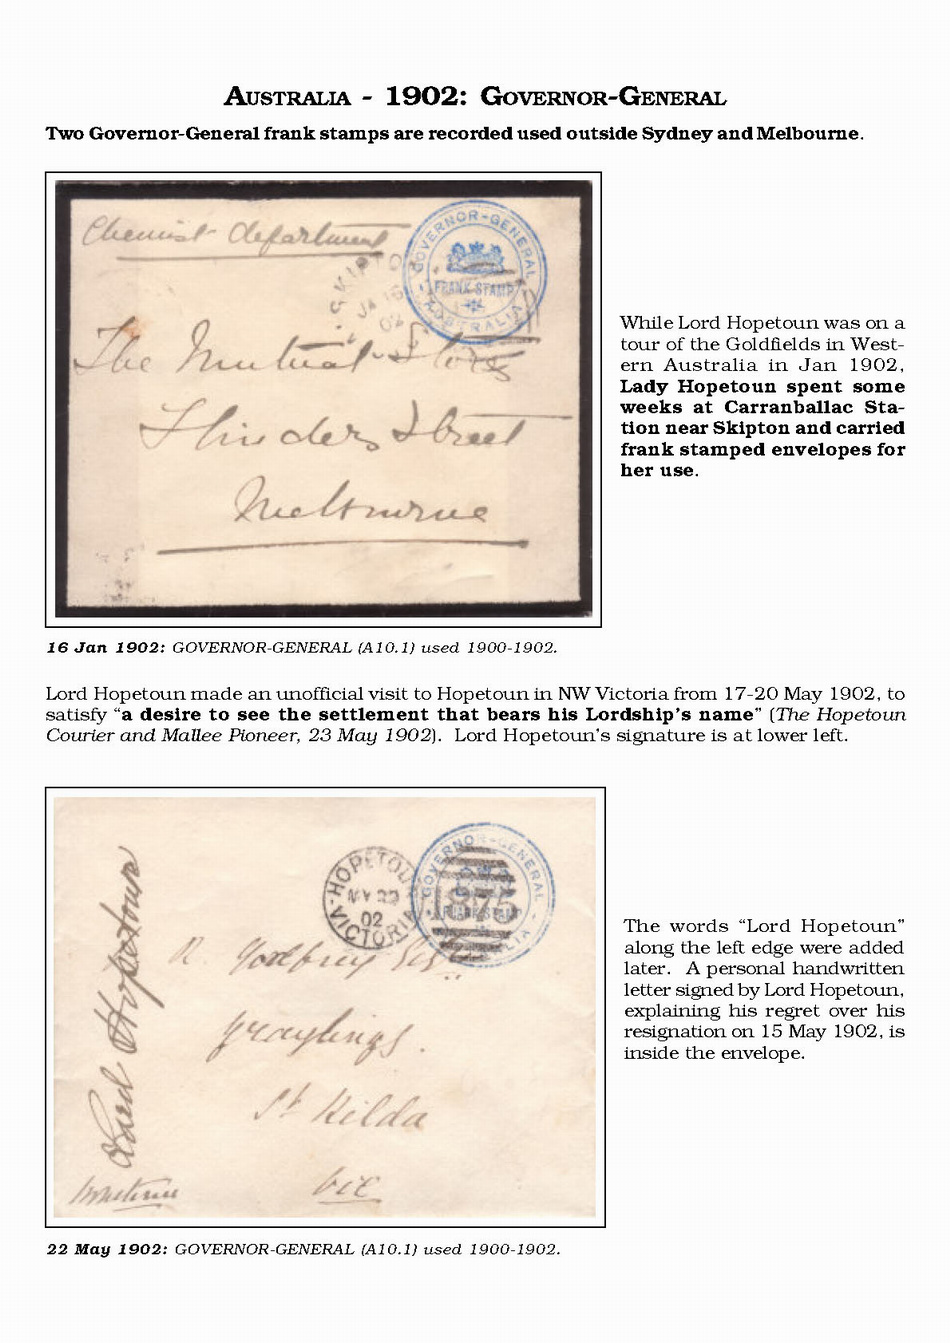 AUSTRALIA - 1902: GOVERNOR-GENERAL
Two Governor-General frank stamps are recorded used outside Sydney and Melbourne.
Chemist department
GOVERNOR-GENERAL
FRANK STAMP
AUSTRALIA
SKIPTO
JA 16
02
The Mutual Store
Flinders Street
Melbourne
While Lord Hopetoun was on a
tour of the Goldfields in West-
ern Australia in Jan 1902,
Lady Hopetoun spent some
weeks at Carranballac Sta-
tion near Skipton and carried
frank stamped envelopes for
her use.
16 Jan 1902: GOVERNOR-GENERAL (A10.1) used 1900-1902.
Lord Hopetoun made an unofficial visit to Hopetoun in NW Victoria from 17-20 May 1902, to
satisfy “a desire to see the settlement that bears his Lordship’s name” (The Hopetoun
Courier and Mallee Pioneer, 23 May 1902). Lord Hopetoun’s signature is at lower left.
HOPETOUN
MY 22
02
VICTORIA
GOVERNOR-GENERAL
FRANK STAMP
875
R Godfrey Esq
Graylings.
St Kilda
Vic
Lord Hopetoun
Hopetoun
The words “Lord Hopetoun”
along the left edge were added
later. A personal handwritten
letter signed by Lord Hopetoun,
explaining his regret over his
resignation on 15 May 1902, is
inside the envelope.
22 May 1902: GOVERNOR-GENERAL (A10.1) used 1900-1902.